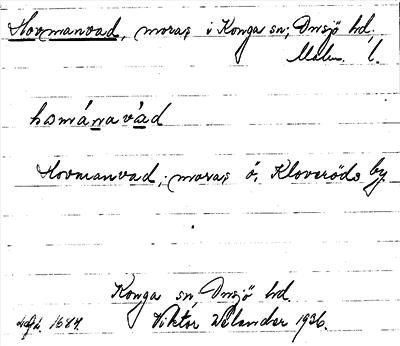 Hovmanvad, moras i Konga sn, Onsjö hd.
Malm. l.
hɔmánavàd
Hovmanvad, moras ö. Kloveröds by.
Konga sn, Onsjö hd.
1684.
Viktor Welander 1936.